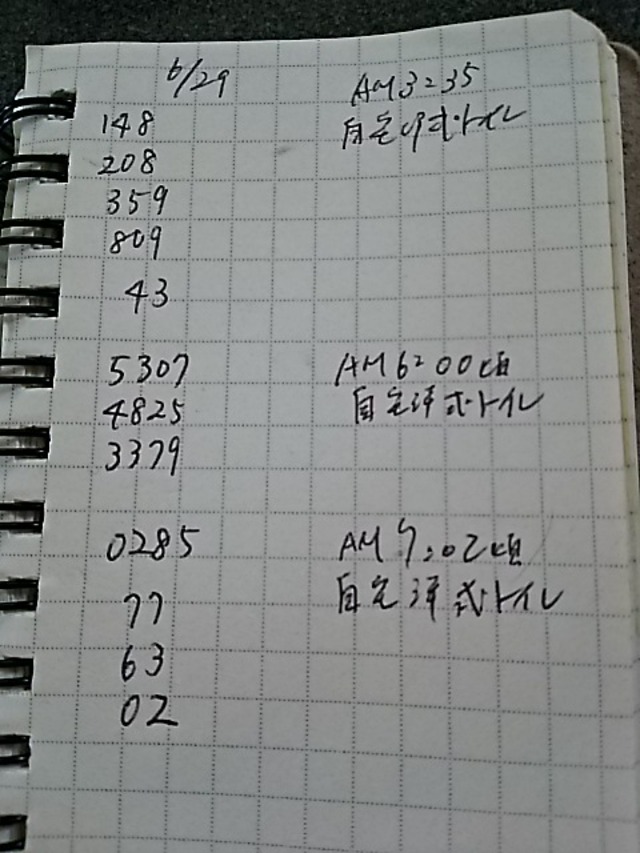 6/29
AM3:35
148
自宅洋式トイレ
208
359
809
43
5307
AM6:00頃
4825
自宅洋式トイレ
3379
0285
AM7:02頃
77
自宅洋式トイレ
63
02